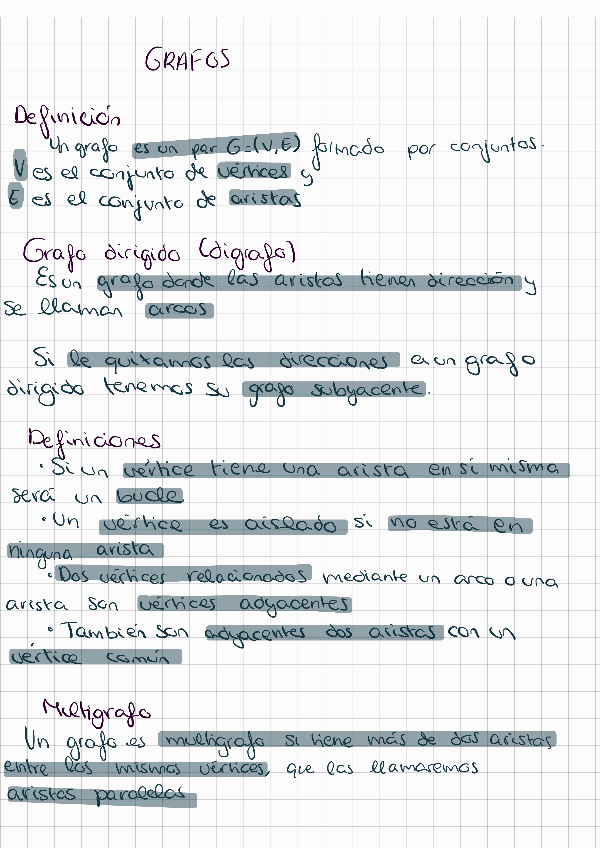 GRAFOS
Definición
Un grafo es un par G=(V,E) formado por conjuntos.
V es el conjunto de vértices y
E es el conjunto de aristas
Grafo dirigido (digrafo)
Es un grafo donde las aristas tienen dirección y
se llaman arcos
Si le quitamos las direcciones a un grafo
dirigido tenemos su grafo subyacente.
Definiciones
· Si un vértice tiene una arista en sí misma
será un bucle
· Un vértice es aislado si no está en
ninguna arista
· Dos vértices relacionados mediante un arco o una
arista son vértices adyacentes
· También son adyacentes dos aristas con un
vértice común
Multigrafo
Un grafo es multigrafo si tiene más de dos aristas
entre los mismos vértices, que las llamaremos
aristas paralelas